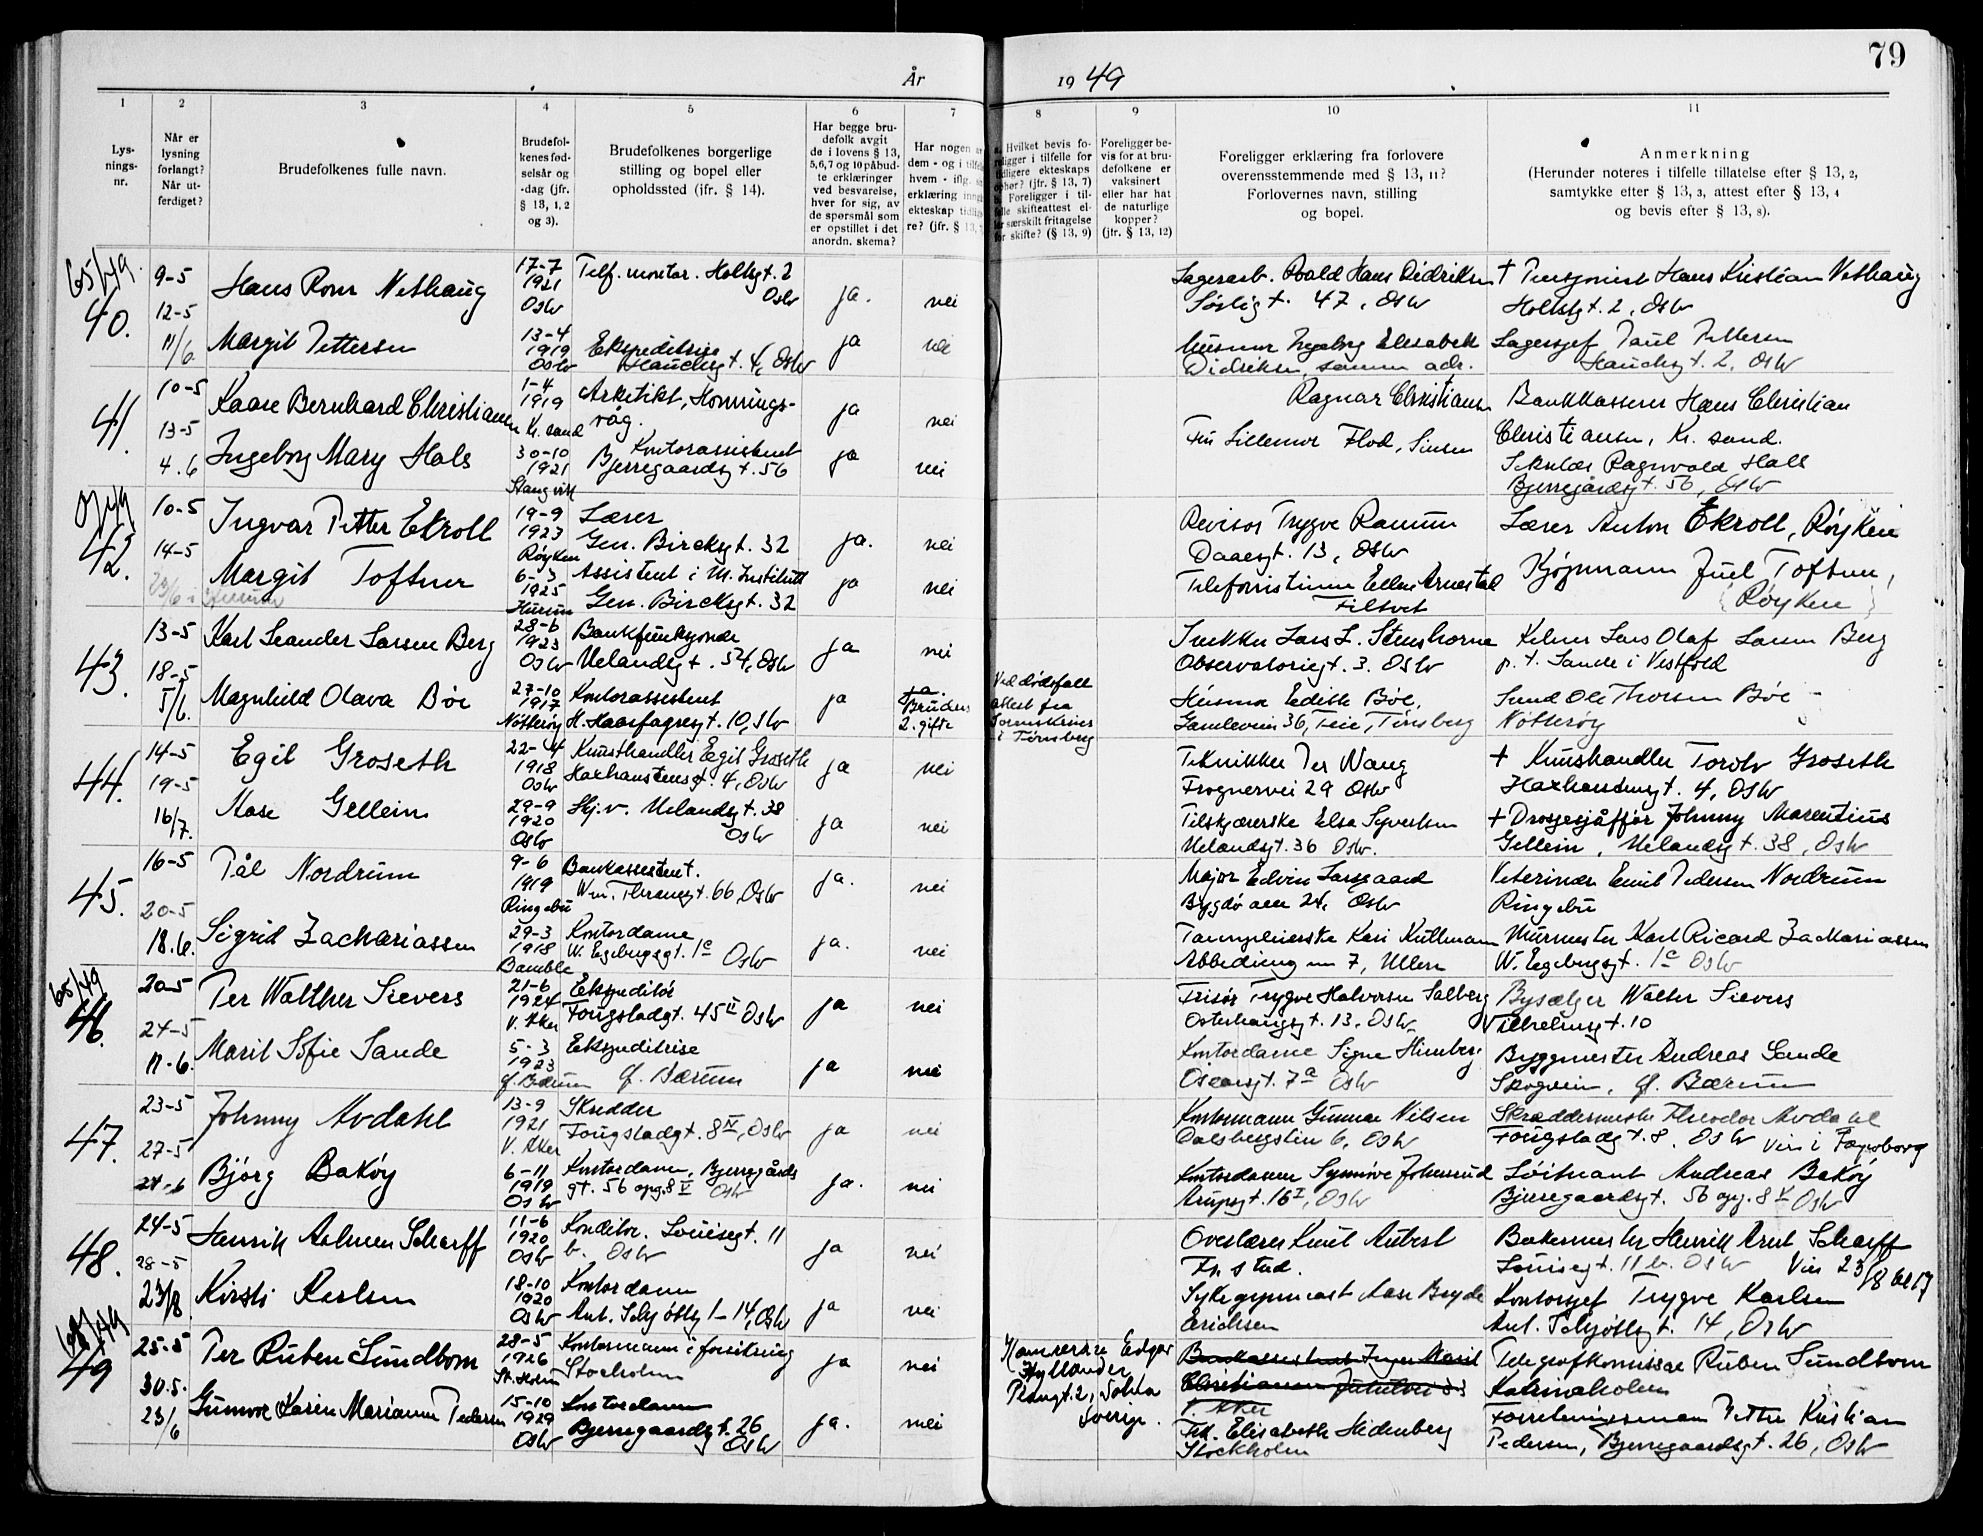 79
År 1949
1
2
3
4
5
6
7
8
9
10
11
Lys-
nings-
nr.
Når er
lysning
forlangt?
Når ut-
ferdiget?
Brudefolkenes fulle navn.
Brudefol-
kenes fød-
selsår og
-dag (jfr.
§ 13, 1, 2
og 3).
Brudefolkenes borgerlige
stilling og bopel eller
opholdssted (jfr. § 14).
Har begge bru-
defolk avgit
de i lovens § 13,
5,6,7 og 10 påbud-
te erklæringer
ved besvarelse,
hver for sig, av
de spørsmål som
er opstillet i det
anordn. skema?
Har nogen
dem - og i
hvem - iflg.
erklæring
ekteskap
re? (jfr. § 13,
Hvilket bevis fo-
religger i tilfelle for
tidligere ekteskaps
ophør? (jfr. § 13, 7)
Foreligger i til-
felle skifteattest el-
ler særskilt fritagelse
for skifte? (§ 13, 9)
Foreligger be-
vis for at bru-
defolkene er
vaksinert
eller har hat
de naturlige
kopper?
(jfr. § 13, 12)
Foreligger erklæring fra forlovere
overensstemmende med § 13, 11?
Forlovernes navn, stilling
og bopel.
Anmerkning
(Herunder noteres i tilfelle tillatelse efter § 13, 2,
samtykke efter § 13, 3, attest efter § 13, 4
og bevis efter § 13, 8).
65/49.
40.
9-5
12-5
11/6
Hans Rom Nethaug
17-7
1921
Oslo
Telf. montør. Holtsgt. 2
Oslo
ja.
nei
Lagerarb. Roald Hans Didriksen
Sørligt. 47, Oslo
+ Pensjonist Hans Kristian Nethaug
Holtsgt. 2, Oslo
Margit Pettersen
13-4
1919
Oslo
Ekspeditrise
Hauchsgt. 4, Oslo
ja
nei
Husmor Ingeborg Elisabeth
Didriksen, samme adr.
Lagersjef Paul Pettersen
Hauchsgt. 2, Oslo
41.
10-5
13-5
4.6
Kaare Bernhard Christiansen
1-4
1919
Kr. sand
Arkitekt, Honnings-
våg.
ja
nei
Ragnar Christiansen
Bankkasserer Hans Christian
Christiansen, Kr. sand.
Ingeborg Mary Hals
30-10
1921
Stangvik
Kontorassistent
Bjerregaardsgt. 56
ja
nei
Frk Lillemor Flod, Sinsen
Ragnvald Hals
Bjerregårdsgt. 56, Oslo
42.
10-5
14-5
Ingvar Petter Ekroll
19-9
1923
Røyken
Lærer
Gen. Bircksgt. 32
ja.
nei
Revisor Trygve Ramum
Daaesgt. 13, Oslo
Lærer Anton Ekroll, Røyken
Margit Toftner
6-3
1925
Hurum
Assistent i M. Institutt
Gen. Bircksgt. 32
ja
nei
Telefonistinne Ellen Arnestad
Filtvet
Kjøpmann Juel Toftner,
Røyken
43.
13-5
18-5
5/6.
Karl Leander Larsen Berg
28-6
1923
Oslo
Bankfunksjonær
Uelandsgt. 54, Oslo
ja
nei
Lars L. Stenshorne
Observatoriegt. 3. Oslo
Kelner Lars Olaf Larsen Berg
p.t. Sande i Vestfold
Magnhild Olava Bøe
27-10
1917
Nøtterøy
Kontorassistent
H. Haarfagresgt. 10, Oslo
ja
ja.
Bruden
2. gifte
Ved dødsfall
attest fra
Sorenskriver
i Tønsberg
Husmor Edith Bøe,
Gamleveien 36, Teie, Tønsberg
Ole Thorsen Bøe -
Nøtterøy
44.
14-5
19-5
16/7.
Egil Groseth
22-4
1918
Oslo
Kunsthandler Egil Groseth
Haxthausensgt. 4, Oslo
ja
nei
Tekniker Per Wang
Frognervei 29 Oslo
+ Kunsthandler Torolv Groseth
Haxthausensgt. 4, Oslo
Aase Gellein
29-9
1920
Oslo
Skj.v. Uelandsgt. 38
Oslo
ja
nei
Tilskjærerske Elsa Syvertsen
Uelandsgt. 36 Oslo.
+ Drosjesjåffør Johnny Marentius
Gellein, Uelandsgt. 38, Oslo
45.
16-5
20-5
18.6.
Pål Nordrum
9-6
1919
Ringebu
Bankassistent.
Wm. Thranesgt. 66, Oslo
ja.
nei
Major Edvin Larsgaard
Bygdø alle 24, Oslo
Veterinær Emil Pedersen Nordrum
Ringebu
Sigrid Zachariassen
29-3
1918
Bamble
Kontordame
W. Egebergsgt. 1c Oslo
ja.
nei
Tannpleierske Kari Kullmann
Abbedieng. 7, Ullern
Murmester Karl Ricard Zachariassen
W. Egebergsgt. 1c Oslo
65/49
46.
20-5
24-5
11-6.
Per Walther Sievers
21-6
1924
V. Aker
Ekspeditør
Fougstadgt. 45 II Oslo
ja
nei
Frisør Trygve Halvorsen Salberg
Osterhausgt. 13, Oslo
Bysælger Walter Sievers
Vilhelmsgt. 10
Marit Sofie Sande
5-3
1923
Ø. Bærum
Ekspeditrise
Ø. Bærum
ja
nei
Kontordame Signe Himberg
Oscarsgt. 7a Oslo
Byggmester Andreas Sande
Skogveien, Ø. Bærum
47.
23-5
27-5
Johnny Avdahl
13-9
1921
V. Aker
Skredder
Fougstadgt. 8 IV, Oslo
ja
nei
Kontormann Gunnar Nilsen
Dalsbergstien 6, Oslo
Skreddermester Theodor Avdahl
Fougstadgt. 8, Oslo Vies i Fagerborg
Bjørg Bakøy
6-11
1919
Oslo
Kontordame, Bjerregårds
gt. 56 opg. 8 V Oslo
ja.
nei
Kontordame Synnøve Johnsrud
Arupsgt. 16 I, Oslo
Løitnant Andreas Bakøy
Bjerregaardsgt. 56 opg. 8 V Oslo
48.
24-5
28-5
23/8.
Henrik Aalmen Scharff
11-6
1920
Oslo
Konditor. Louisesgt. 11
b. Oslo
ja
nei
Overlærer Knut Aubert
Fr. stad.
Bakermester Henrik Arnt Scharff
Louisesgt. 11 b. Oslo Vies 23/8 kl 17
Kirsti Karlsen
18-10
1920
Oslo
Kontordame
Ant. Schjøttsg 1-14, Oslo
ja
nei
Sykegymnast Aase Bryde
Erichsen
Kontorsjef Trygve Karlsen
Ant. Schjøttsgt. 14, Oslo
68/49
49
25-5
30.5.
23/6
Per Ruben Sundbom
28-5
1926
St. Holm
Kontormann i forsikring
Stockholm
ja
nei
Kamrerare Edgar
Hyllander
Prangt. 2, Solna
Sverige.
Bankassistent Inger Marit
Christiansen
V. Aker
Telegrafkomissar Ruben Sundbom
Katrineholm
Gunvor Karin Marianne Pedersen
15-10
1929
Oslo
Kontordame
Bjerregaardsgt. 26
Oslo
ja.
nei
Frk. Elisabeth Hedenberg
Stockholm
Forretningsmann Petter Kristian
Pedersen, Bjerregaardsgt. 26, Oslo